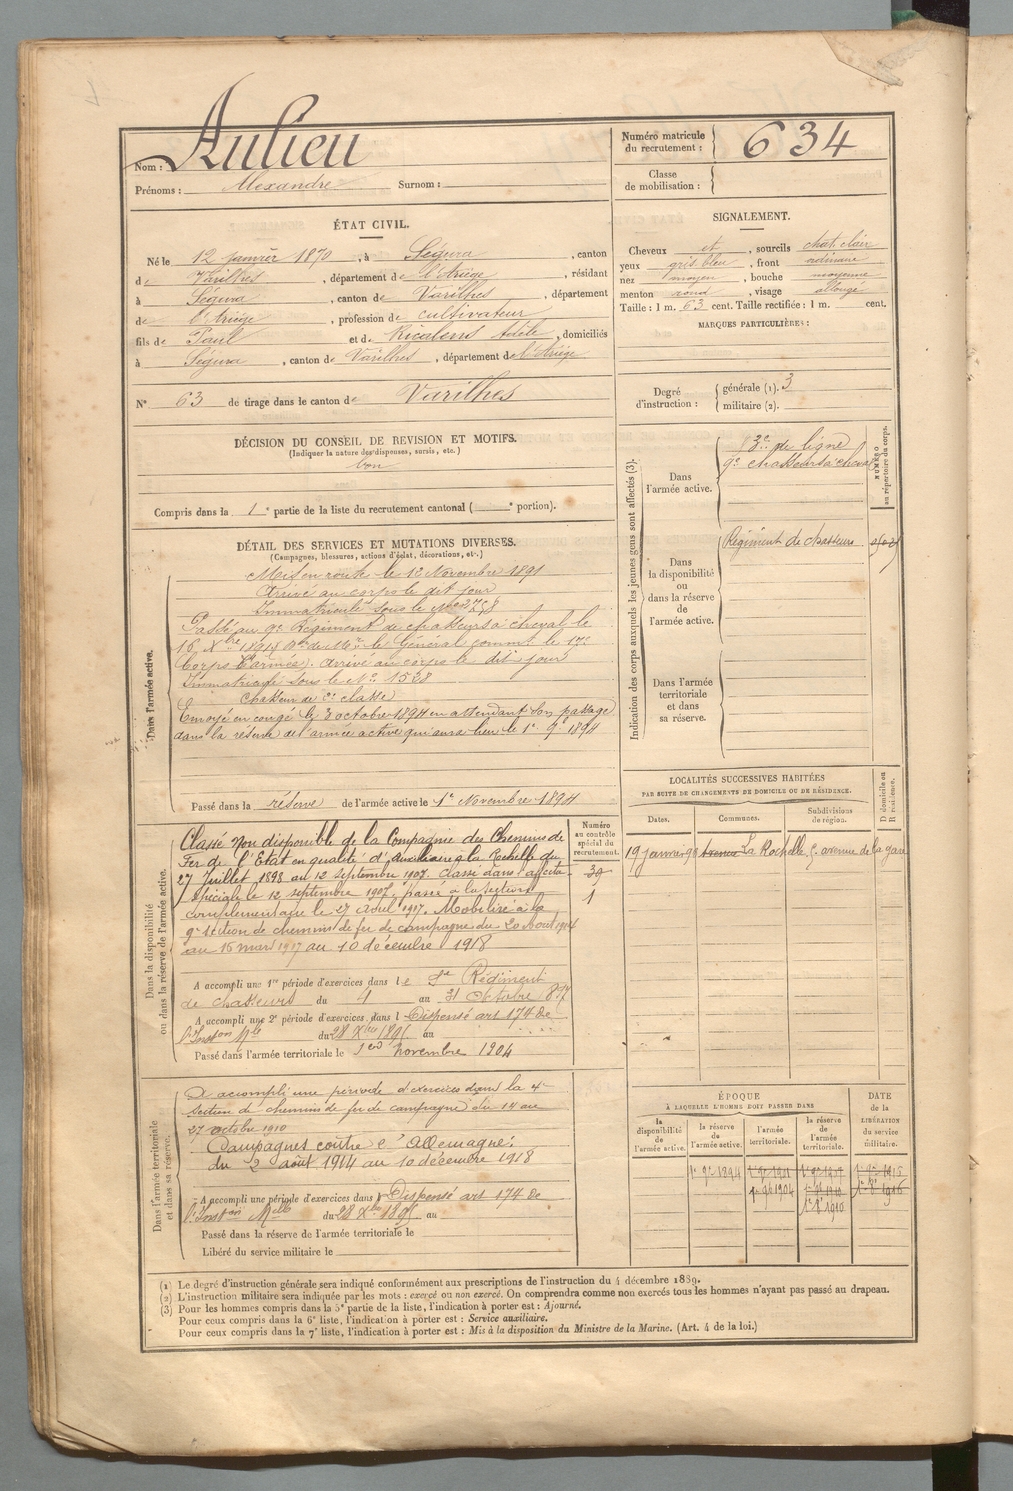 Nom : Aulieu
Prénoms : Alexandre Surnom :
Numéro matricule
du recrutement : 634
Classe
de mobilisation :
ÉTAT CIVIL.
Né le 12 janvier 1870, à Ségura, canton
de Varilhes, département de l'Ariège, résidant
à Ségura, canton de Varilhes, département
de l'Ariège, profession de cultivateur
fils de Paul et de Ricalens Adèle, domiciliés
à Ségura, canton de Varilhes, département de l'Ariège
N° 63 de tirage dans le canton de Varilhes
DÉCISION DU CONSEIL DE REVISION ET MOTIFS.
(Indiquer la nature des dispenses, sursis, etc.)
bon
Compris dans la 1e partie de la liste du recrutement cantonal ( e portion).
SIGNALEMENT.
Cheveux et, sourcils chat. clair
yeux gris bleu, front ordinaire
nez moyen, bouche moyenne
menton rond, visage allongé
Taille : 1 m. 63 cent. Taille rectifiée : 1 m. cent.
MARQUES PARTICULIÈRES :
Degré
d'instruction :
générale (1). 3
militaire (2).
DÉTAIL DES SERVICES ET MUTATIONS DIVERSES.
(Campagnes, blessures, actions d'éclat, décorations, etc.)
Dans l'armée active.
Mis en route le 12 Novembre 1891
Arrivé au corps le dit jour
Immatriculé sous le
Passé au 9e Régiment de chasseurs à cheval le
16 Xbre 1891 le Général commt le 17e
Corps d'armée). Arrivé au corps le dit jour
Immatriculé sous le No 1528
Chasseur de 2e classe
Envoyé en congé le 3 octobre 1894 en attendant son passage
dans la réserve de l'armée active qui aura lieu le 1er 9e 1894
Passé dans la réserve de l'armée active le 1er Novembre 1894
Indication des corps auxquels les jeunes gens sont affectés (3).
NUMÉRO
au répertoire du corps.
Dans
l'armée active.
de ligne
9e chasseurs à cheval
Dans
la disponibilité
ou
dans la réserve
de
l'armée active.
Régiment de chasseurs
Dans l'armée
territoriale
et dans
sa réserve.
Dans la disponibilité
ou dans la réserve de l'armée active.
Numéro
au contrôle
spécial du
recrutement.
39
1
Classé Non disponible de la Compagnie des Chemins de
Fer de l'Etat en qualité d'auxiliaire à la Rochelle du
27 Juillet 1898 au 12 septembre 1907. Classé dans l'affecton
spéciale le 12 septembre 1907. passé à la section
complémentaire le 27 Avril 1917. Mobilisé à la
9e section de chemins de fer de campagne du 20 Aout 1914
au 15 mars 1917 au 10 décembre 1918
A accompli une 1re période d'exercices dans le Régiment
de chasseurs du 4 au 31 octobre 897
A accompli une 2e période d'exercices dans l Dispensé art 174 de
l'Inston Mlle du 28 Xbre 1895 au
Passé dans l'armée territoriale le 1er novembre 1904
LOCALITÉS SUCCESSIVES HABITÉES
PAR SUITE DE CHANGEMENTS DE DOMICILE OU DE RÉSIDENCE.
Dates. Communes. Subdivisions
de région. D domicile ou
R résidence.
19 janvier 98 La Rochelle, avenue de la gare
Dans l'armée territoriale
et dans sa réserve.
A accompli une période d'exercices dans la 4e
section de chemins de fer de campagne du 14 au
27 octobre 1910
Campagnes contre l'Allemagne :
du 2 août 1914 au 10 décembre 1918
A accompli une période d'exercices dans l Dispensé art 174 de
l'Inston Mlle du 28 Xbre 1895 au
Passé dans la réserve de l'armée territoriale le
Libéré du service militaire le
ÉPOQUE
À LAQUELLE L'HOMME DOIT PASSER DANS
la
disponibilité
de
l'armée active.
la réserve
de
l'armée active.
l'armée
territoriale.
la réserve
de
l'armée
territoriale.
DATE
de la
LIBÉRATION
du service
militaire.
1er 9e 1894
1er 9b 1904
1910
(1) Le degré d'instruction générale sera indiqué conformément aux prescriptions de l'instruction du 4 décembre 1889.
(2) L'instruction militaire sera indiquée par les mots : exercé ou non exercé. On comprendra comme non exercés tous les hommes n'ayant pas passé au drapeau.
(3) Pour les hommes compris dans la 5e partie de la liste, l'indication à porter est : Ajourné.
Pour ceux compris dans la 6e liste, l'indication à porter est : Service auxiliaire.
Pour ceux compris dans la 7e liste, l'indication à porter est : Mis à la disposition du Ministre de la Marine. (Art. 4 de la loi.)